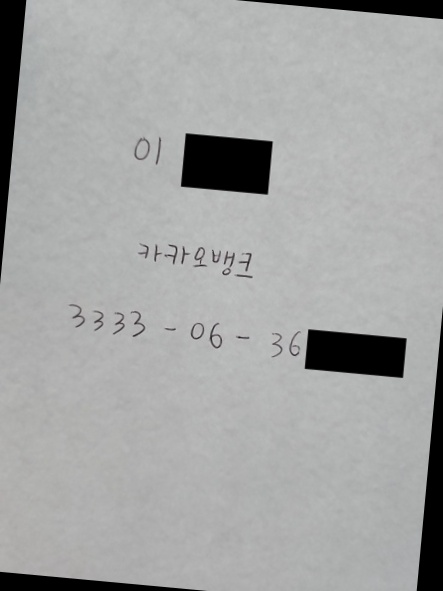 이
카카오뱅크
3333-06-36